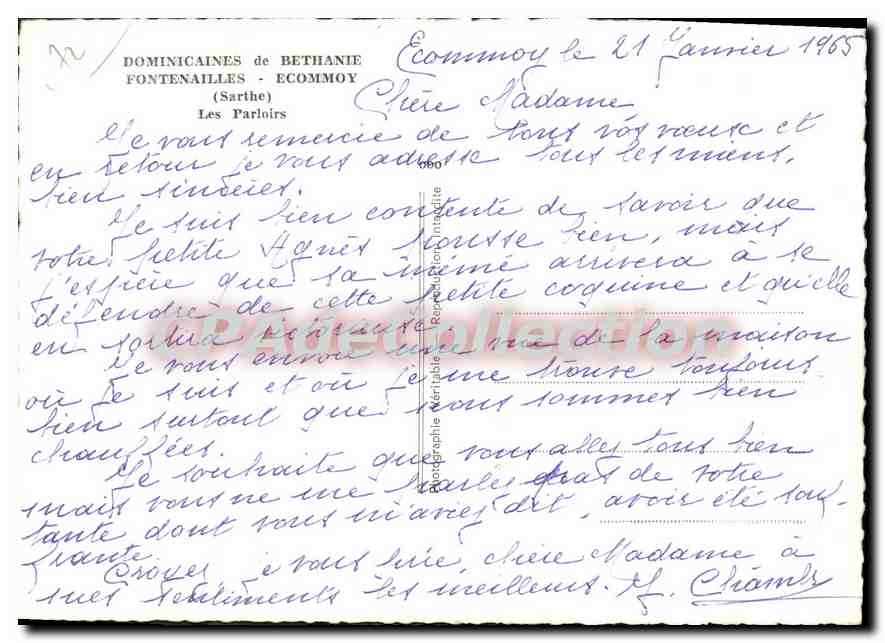 DOMINICAINES de BETHANIE
FONTENAILLES - ECOMMOY
(Sarthe)
Les Parloirs
Ecommoy le 21 Janvier 1965
Chère Madame
Je vous remercie de tous vos voeux et
en retour je vous adresse tous les miens,
bien sincères.
Je suis bien contente de savoir que
votre petite Agnès pousse bien, mais
j'espère que sa mémé arrivera à se
défendre de cette petite coquine et qu'elle
en sortira victorieuse.
Je vous envoie une vue de la maison
où je suis et où je me trouve toujours
bien surtout que nous sommes bien
chauffées.
Je souhaite que vous allez tous bien
mais vous ne me parlez pas de votre
tante dont vous m'aviez dit, avoir été souf-
frante.
Croyez je vous prie, chère Madame à
mes sentiments les meilleurs. M.
Photographie véritable - Reproduction Interdite
CPAdeCollection